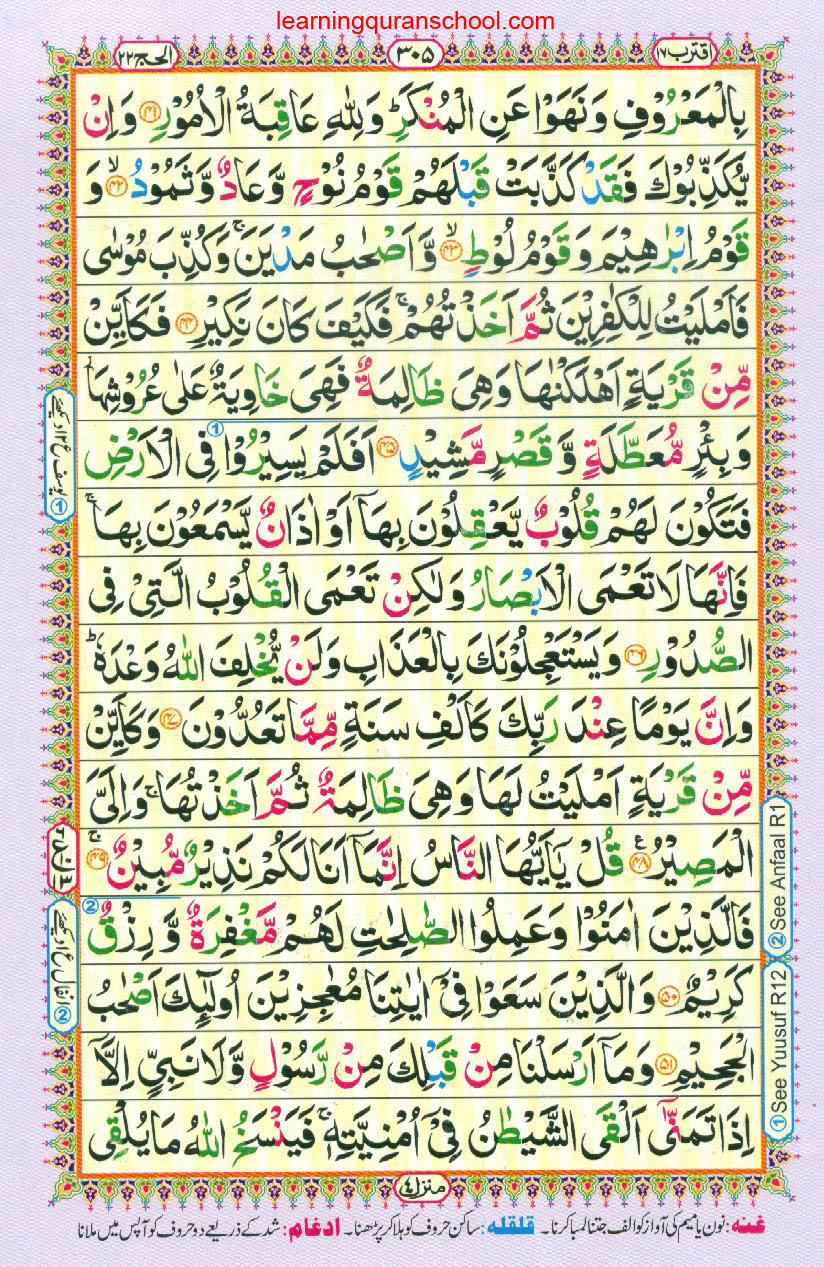 learningquranschool.com
اقترب ۱۷
۳۰۵
الحج ۲۲
بِالْمَعْرُوْفِ وَنَهَوْا عَنِ الْمُنْكَرِؕ وَلِلّٰهِ عَاقِبَةُ الْاُمُوْرِ ۴۱ وَاِنْ
يُّكَذِّبُوْكَ فَقَدْ كَذَّبَتْ قَبْلَهُمْ قَوْمُ نُوْحٍ وَّعَادٌ وَّثَمُوْدُ ۙ۴۲ وَ
قَوْمُ اِبْرٰهِيْمَ وَقَوْمُ لُوْطٍ ۙ۴۳ وَّاَصْحٰبُ مَدْيَنَ ۚ وَكُذِّبَ مُوْسٰى
فَاَمْلَيْتُ لِلْكٰفِرِيْنَ ثُمَّ اَخَذْتُهُمْ ۚ فَكَيْفَ كَانَ نَكِيْرِ ۴۴ فَكَاَيِّنْ
مِّنْ قَرْيَةٍ اَهْلَكْنٰهَا وَهِىَ ظَالِمَةٌ فَهِىَ خَاوِيَةٌ عَلٰى عُرُوْشِهَا
وَبِئْرٍ مُّعَطَّلَةٍ وَّقَصْرٍ مَّشِيْدٍ ۴۵ اَفَلَمْ يَسِيْرُوْا فِى الْاَرْضِ
فَتَكُوْنَ لَهُمْ قُلُوْبٌ يَّعْقِلُوْنَ بِهَاۤ اَوْ اٰذَانٌ يَّسْمَعُوْنَ بِهَا ۚ
فَاِنَّهَا لَا تَعْمَى الْاَبْصَارُ وَلٰكِنْ تَعْمَى الْقُلُوْبُ الَّتِىْ فِى
الصُّدُوْرِ ۴۶ وَيَسْتَعْجِلُوْنَكَ بِالْعَذَابِ وَلَنْ يُّخْلِفَ اللّٰهُ وَعْدَهٗ ؕ
وَاِنَّ يَوْمًا عِنْدَ رَبِّكَ كَاَلْفِ سَنَةٍ مِّمَّا تَعُدُّوْنَ ۴۷ وَكَاَيِّنْ
مِّنْ قَرْيَةٍ اَمْلَيْتُ لَهَا وَهِىَ ظَالِمَةٌ ثُمَّ اَخَذْتُهَا ۚ وَاِلَىَّ
الْمَصِيْرُ ۴۸ قُلْ يٰۤاَيُّهَا النَّاسُ اِنَّمَاۤ اَنَا لَكُمْ نَذِيْرٌ مُّبِيْنٌ ۚ۴۹
فَالَّذِيْنَ اٰمَنُوْا وَعَمِلُوا الصّٰلِحٰتِ لَهُمْ مَّغْفِرَةٌ وَّرِزْقٌ
كَرِيْمٌ ۵۰ وَالَّذِيْنَ سَعَوْا فِىْۤ اٰيٰتِنَا مُعٰجِزِيْنَ اُولٰٓئِكَ اَصْحٰبُ
الْجَحِيْمِ ۵۱ وَمَاۤ اَرْسَلْنَا مِنْ قَبْلِكَ مِنْ رَّسُوْلٍ وَّلَا نَبِىٍّ اِلَّاۤ
اِذَا تَمَنّٰٓى اَلْقَى الشَّيْطٰنُ فِىْۤ اُمْنِيَّتِهٖ ۚ فَيَنْسَخُ اللّٰهُ مَا يُلْقِى
② See Anfaal R1
① See Yuusuf R12
① یوسف ع۱۲ دیکھیے
② انفال ع۱ دیکھیے
منزل ۴
غنه: نون یا میم کی آواز کو الف جتنا لمبا کرنا۔ قلقله: ساکن حروف کو ہلا کر پڑھنا۔ ادغام: شد کے ذریعے دو حروف کو آپس میں ملانا